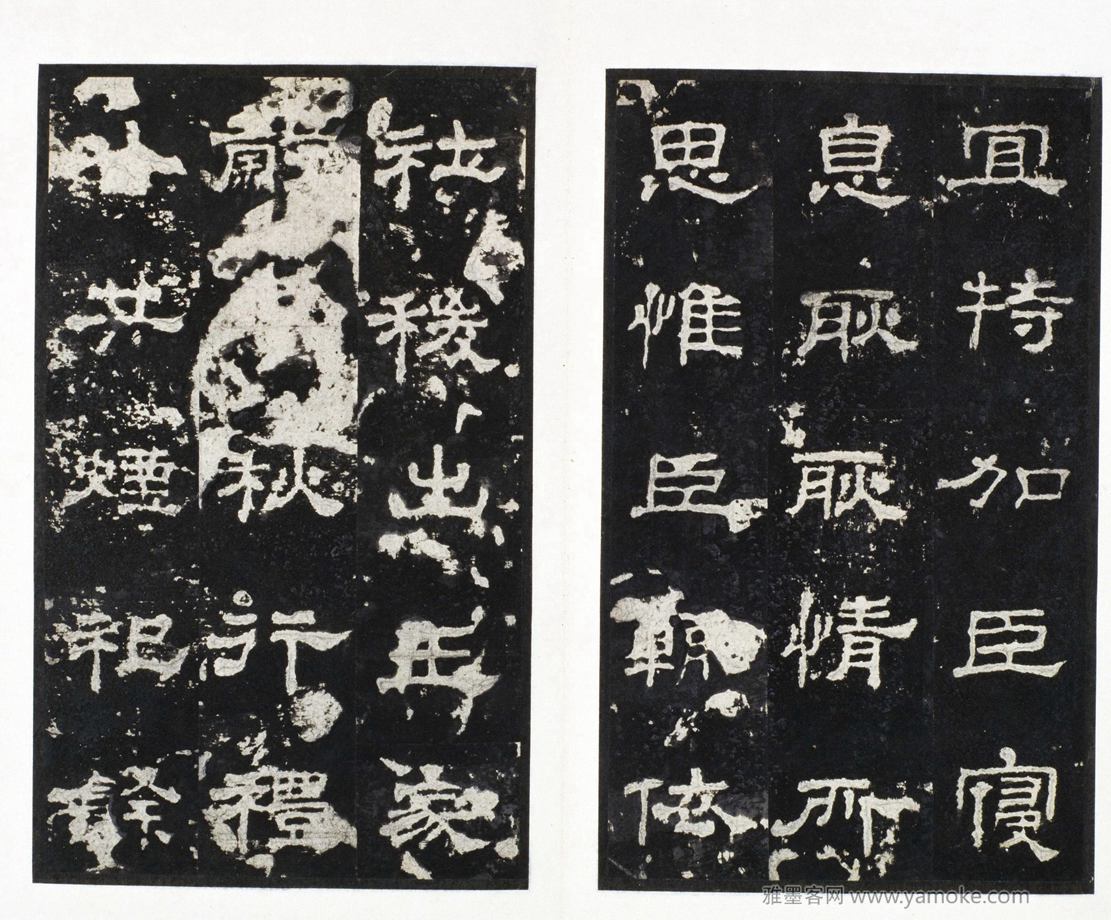 宜特加臣寑
息耿耿情所
思惟臣輒依
社稷出王家
秋行禮
共煙祀餘
雅墨客网 www.yamoke.com